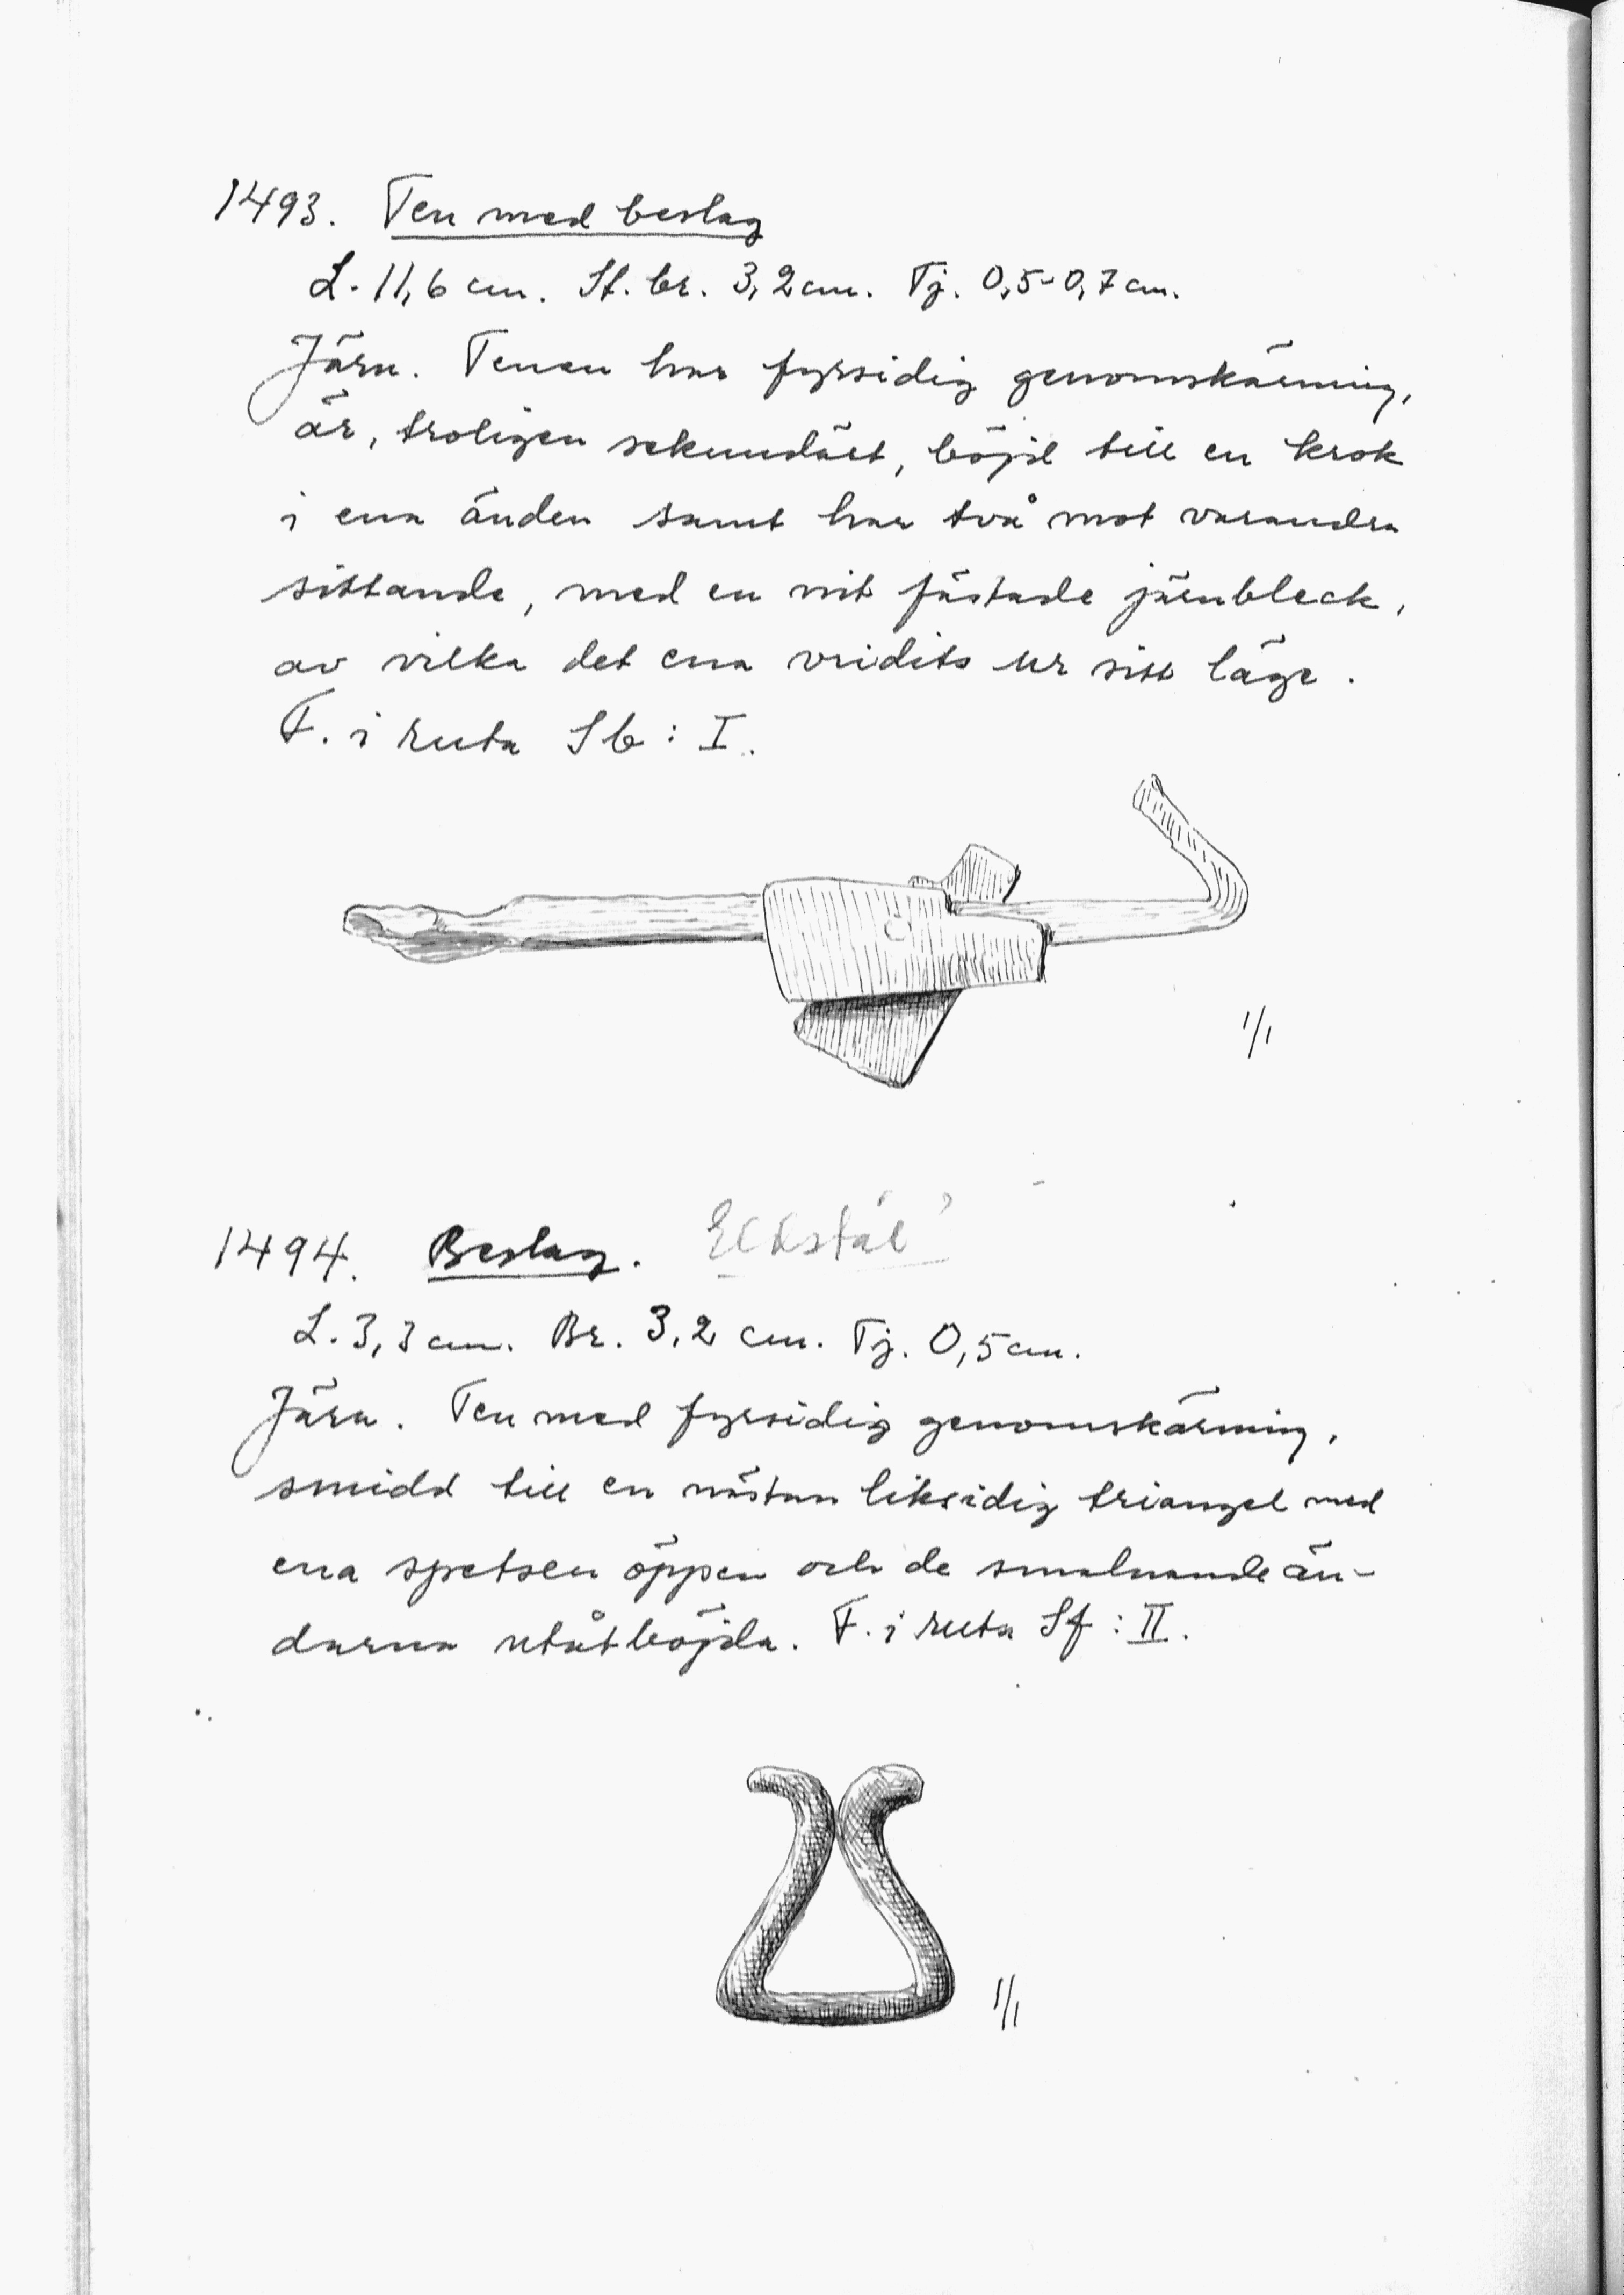 1493. Ten med beslag
L. 11,6 cm. St. br. 3,2 cm. Tj. 0,5-0,7 cm.
Järn. Tenen har fyrsidig genomskärning,
är, troligen sekundärt, böjd till en krok
i ena änden samt har två mot varandra
sittande, med en nit fästade järnbleck,
av vilka det ena vridits ur sitt läge.
F. i ruta Sb : I.
1/1
1494. Beslag. Eldstål?
L. 3,3 cm. Br. 3,2 cm. Tj. 0,5 cm.
Järn. Ten med fyrsidig genomskärning,
smidd till en nästan liksidig triangel med
ena spetsen öppen och de smalnande än-
darna utåtböjda. F. i ruta Sf : II.
1/1